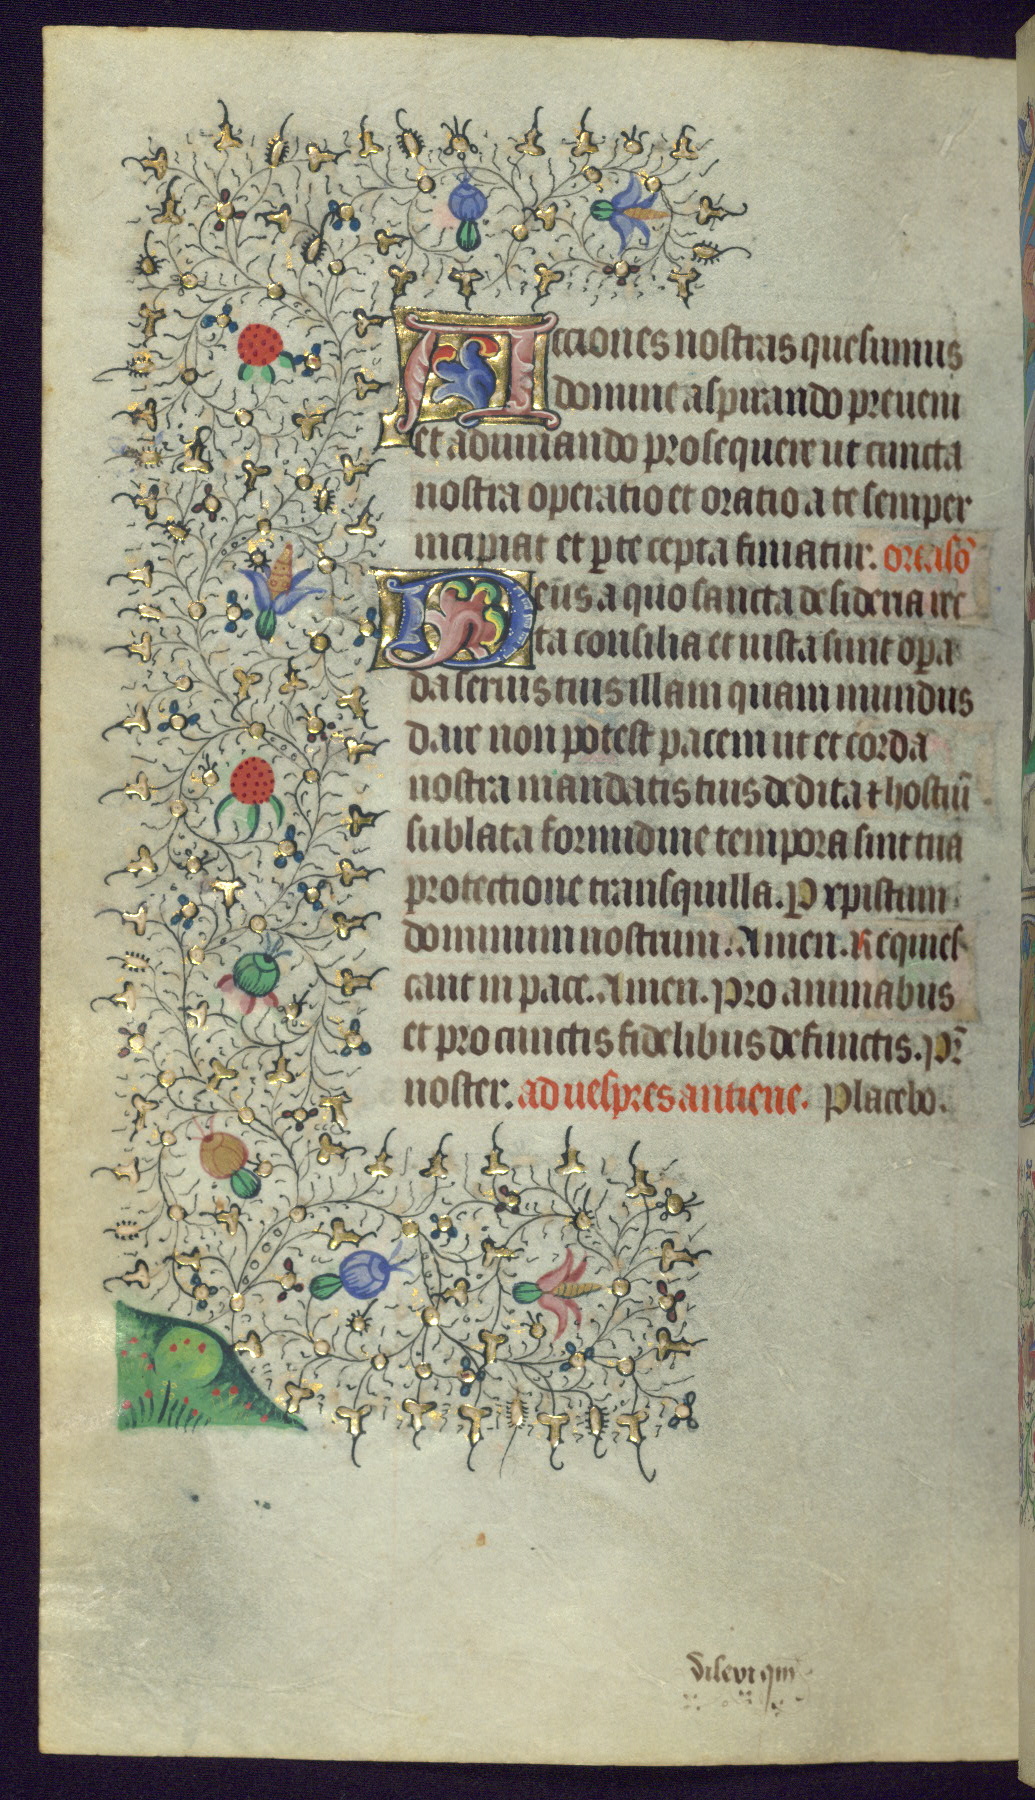 Acciones nostras quesumus
domine aspirando preueni
et adiuuando prosequere ut cuncta
nostra operatio et oratio a te semper
incipiat et p te cepta finiatur. oratiso
Deus a quo sancta desideria rec
ta consilia et iusta sunt opa
da seruis tuis illam quam mundus
dare non potest pacem ut et corda
nostra mandatis tuis dedita ⁊ hostiũ
sublata formidine tempora sint tua
protectione transquilla. P xpistum
dominum nostrum. Amen. Requies
cant in pace. Amen. pro animabus
et pro cunctis fidelibus defunctis. pr̃
noster. ad uespres antiene. Placebo.
Dilexi qm̃